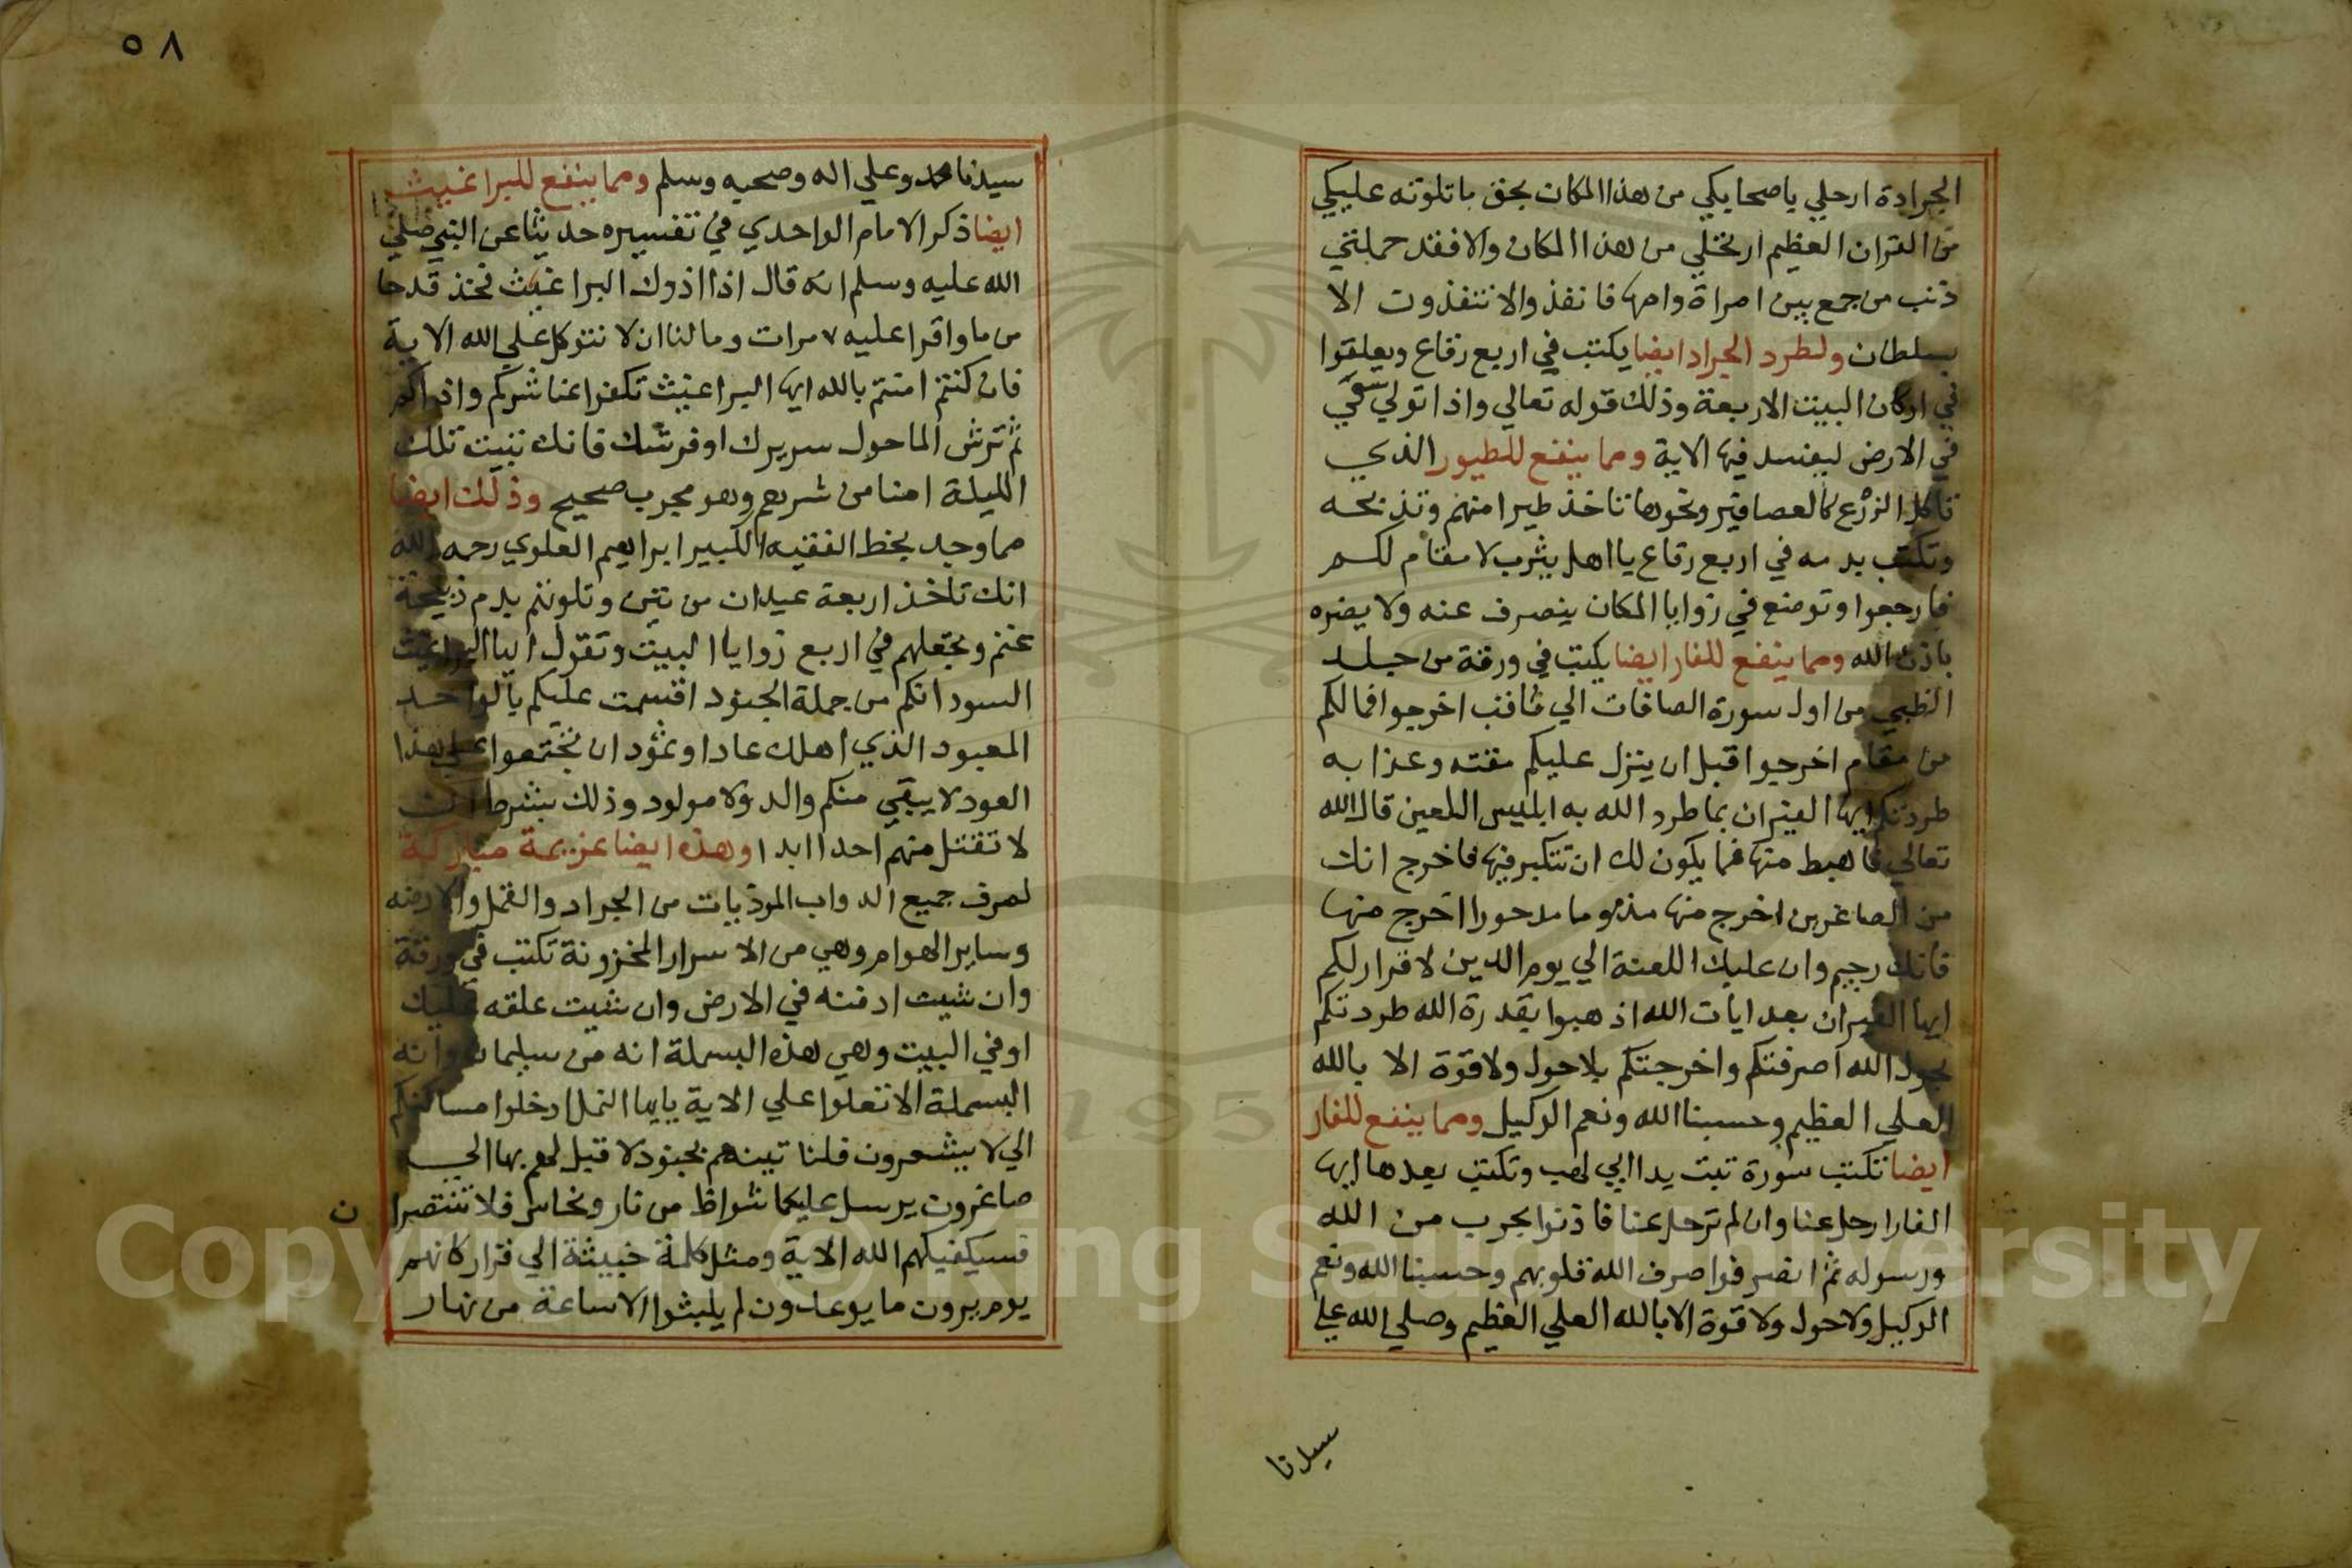 الجرادة ارحلي يا صحابكي من هذا المكان بحق ما تلوته عليكي
من القران العظيم ارتحلي من هذا المكان والا فقد حملتي
ذنب من جمع بين امراة وامها فانفذوا لا تنفذون الا
بسلطان ولطرد الجراد ايضا يكتب في اربع رقاع ويعلقوا
في اركان البيت الاربعة وذلك قوله تعالي واذا تولي سعي
في الارض ليفسد فيها الاية ومما ينفع للطيور الذي
تاكل الزرع كالعصافير ونحوها تاخذ طيرا منهم وتذبحه
وتكتب بدمه في اربع رقاع يا اهل يثرب لا مقام لكم
فارجعوا وتوضع في زوايا المكان ينصرف عنه ولا يضره
باذن الله ومما ينفع للفار ايضا يكتب في ورقة من جلد
الظبي من اول سورة الصافات الي ثاقب اخرجوا فما لكم
من مقام اخرجوا قبل ان ينزل عليكم مقته وعذابه
طردتكم ايها الفيران بما طرد الله به ابليس اللعين قال الله
تعالي فاهبط منها فما يكون لك ان تتكبر فيها فاخرج انك
من الصاغرين اخرج منها مذوما مدحورا اخرج منها
فانك رجيم وان عليك اللعنة الي يوم الدين لا قرار لكم
ايها الفيران بعد ايات الله اذهبوا بقدرة الله طردتكم
بحول الله اصرفتكم واخرجتكم بلا حول ولا قوة الا بالله
العلي العظيم وحسبنا الله ونعم الوكيل ومما ينفع للفار
ايضا تكتب سورة تبت يدا ابي لهب وتكتب بعدها ايها
الفار ارحل عنا وان لم ترحل عنا فاذنوا بحرب من الله
ورسوله ثم انصرفوا صرف الله قلوبهم وحسبنا الله ونعم
الوكيل ولا حول ولا قوة الا بالله العلي العظيم وصلي الله علي
سيدنا
٥٨
سيدنا محمد وعلي اله وصحبه وسلم ومما ينفع للبراغيث
ايضا ذكر الامام الواحدي في تفسيره حديثا عن النبي صلي
الله عليه وسلم انه قال اذا اذوك البراغيث فخذ قدحا
من ما واقرا عليه ٧ مرات وما لنا ان لا نتوكل علي الله الاية
فان كنتم امنتم بالله ايها البراغيث تكفوا عنا شركم واذاكم
ثم ترش الما حول سريرك او فرشك فانك تبيت تلك
الليلة امنا من شرهم وهو مجرب صحيح وذلك ايضا
مما وجد بخط الفقيه الكبير ابراهيم العلوي رحمه الله
انك تاخذ اربعة عيدان من تين وتلوثهم بدم ذبيحة
غنم وتجعلهم في اربع زوايا البيت وتقول ايها البراغيث
السود انكم من جملة الجنود اقسمت عليكم بالواحد
المعبود الذي اهلك عادا وثمود ان تجتمعوا علي هذا
العود لا يبقي منكم والد ولا مولود وذلك بشرط انك
لا تقتل منهم احدا ابدا وهذه ايضا عزيمة مباركة
لصرف جميع الدواب الموذيات من الجراد والقمل والارضه
وساير الهوام وهي من الاسرار المخزونة تكتب في ورقة
وان شيت ادفنه في الارض وان شيت علقه عليك
او في البيت وهي هذه البسملة انه من سليمان وانه
البسملة الا تعلوا علي الاية يايها النمل ادخلوا مساكنكم
الي لا يشعرون فلنا تينهم بجنود لا قبل لهم بها الي
صاغرون يرسل عليكما شواظ من نار ونحاس فلا تنتصرا ن
فسيكفيكهم الله الاية ومثل كلمة خبيثة الي قرار كانهم
يوم يرون ما يوعدون لم يلبثوا الا ساعة من نهار
Copyright © King Saud University
195